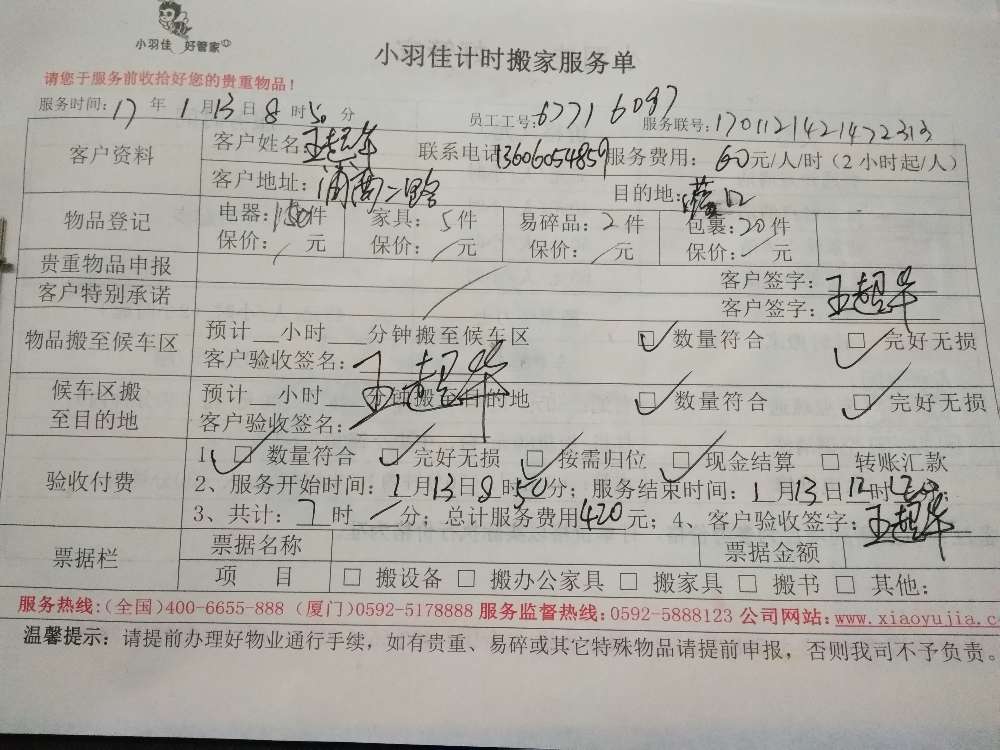 小羽佳 好管家
小羽佳计时搬家服务单
请您于服务前收拾好您的贵重物品！
服务时间：17 年 1 月 13 日 8 时 50 分 员工工号：6771 6097 服务联号：1701121421472313
客户资料 客户姓名：王超华 联系电话 13606054859 服务费用：60元/人/时（2小时起/人）
客户地址：浦南二路 目的地：
物品登记 电器： 件 家具：5件 易碎品：2件 包裹：20件
保价：／元 保价：／元 保价：／元 保价：／元
贵重物品申报 客户签字：王超华
客户特别承诺 客户签字：
物品搬至候车区 预计__小时___分钟搬至候车区 ☑ 数量符合 ☑ 完好无损
客户验收签名：王超华
候车区搬至目的地 预计__小时___分钟搬至目的地 ☑ 数量符合 ☑ 完好无损
客户验收签名：
验收付费 1、☑ 数量符合 ☑ 完好无损 ☑ 按需归位 ☑ 现金结算 □ 转账汇款
2、服务开始时间：1月13日8时50分；服务结束时间：1月13日12时20分；
3、共计：7时／分；总计服务费用420元；4、客户验收签字：王超华
票据栏 票据名称 票据金额
项 目 □ 搬设备 □ 搬办公家具 □ 搬家具 □ 搬书 □ 其他：
服务热线：(全国)400-6655-888（厦门)0592-5178888 服务监督热线：0592-5888123 公司网站：www.xiaoyujia.c
温馨提示：请提前办理好物业通行手续，如有贵重、易碎或其它特殊物品请提前申报，否则我司不予负责。